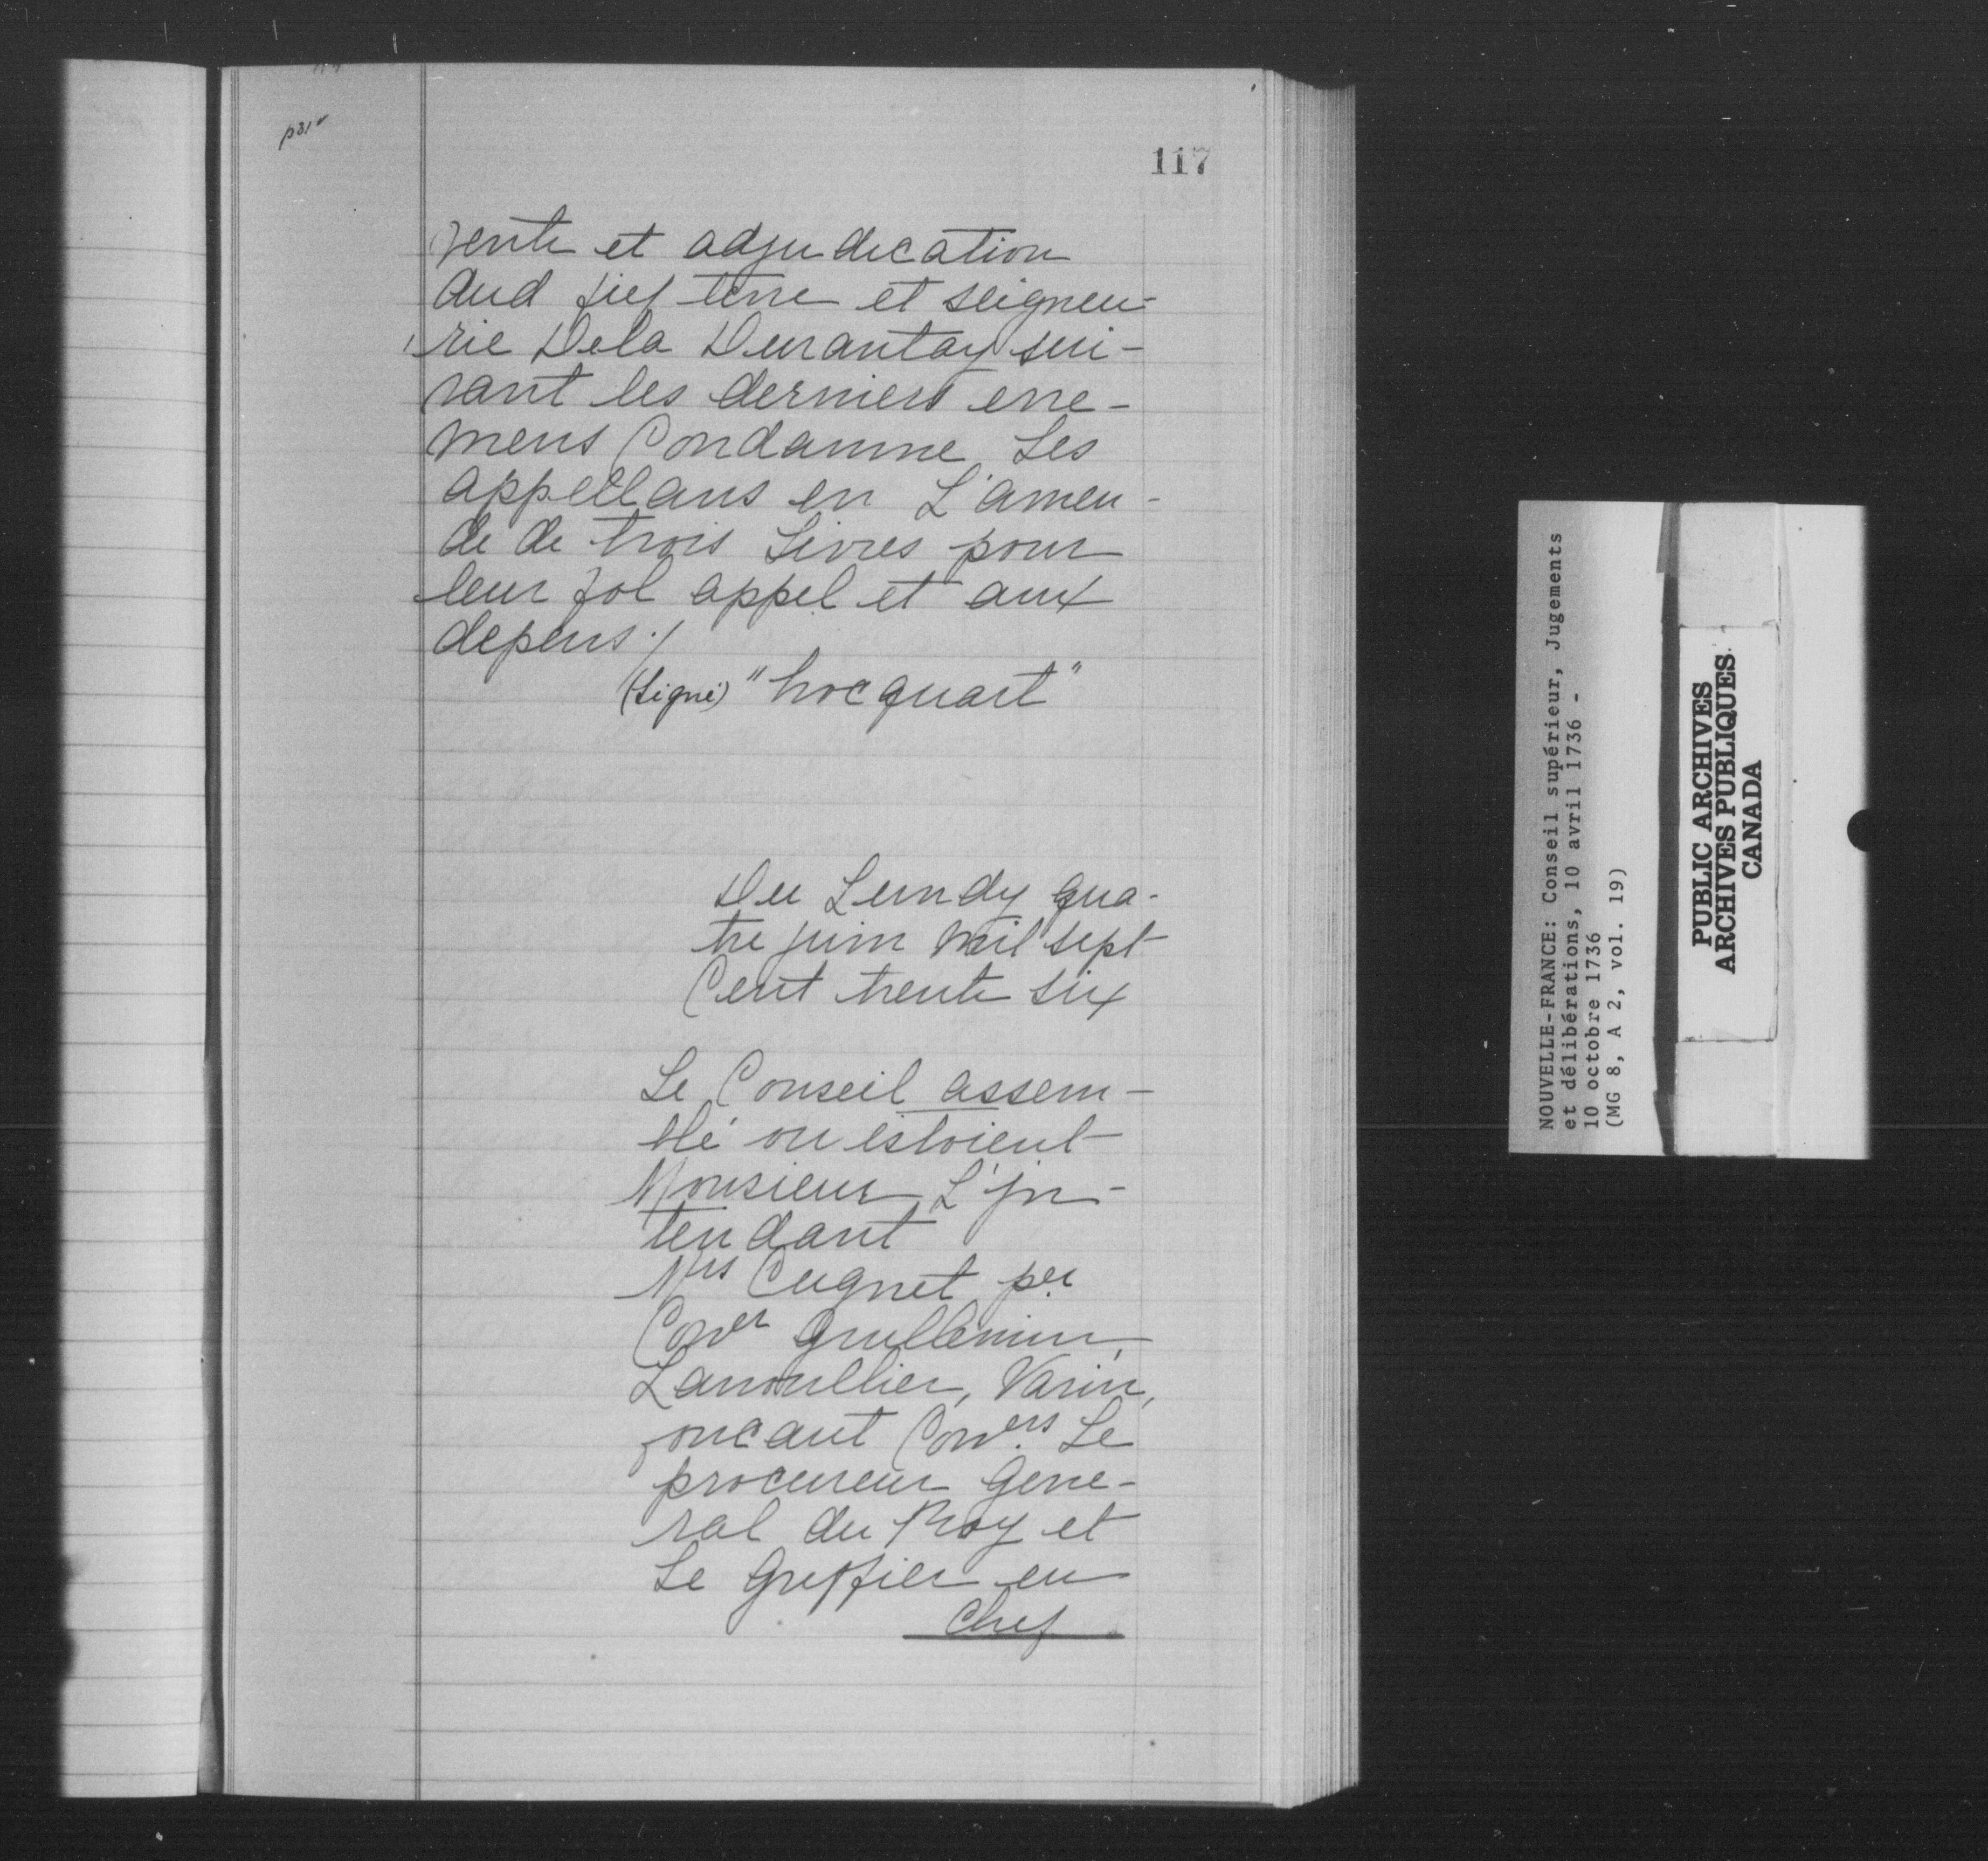 p31v
117
vente et adjudication
dud fief terre et seigneu-
rie Dela Durantay sui-
vant les derniers erre-
mens Condamne Les
appellans en L'amen-
de de trois Livres pour
leur fol appel et aux
depens ./
(Signé) "hocquart"
Du Lundy qua-
tre juin mil sept
Cent trente six
Le Conseil assem-
blé ou estoient
Monsieur L'jn-
tendant
Mrs Cugnet per
Conser Guillemin,
Lanoullier, Varin,
foucaut Consers Le
procureur gene-
ral du Roy et
Le Greffier en
Chef
NOUVELLE-FRANCE: Conseil supérieur, Jugements
et délibérations, 10 avril 1736 -
10 octobre 1736
(MG 8, A 2, vol. 19)
PUBLIC ARCHIVES
ARCHIVES PUBLIQUES
CANADA